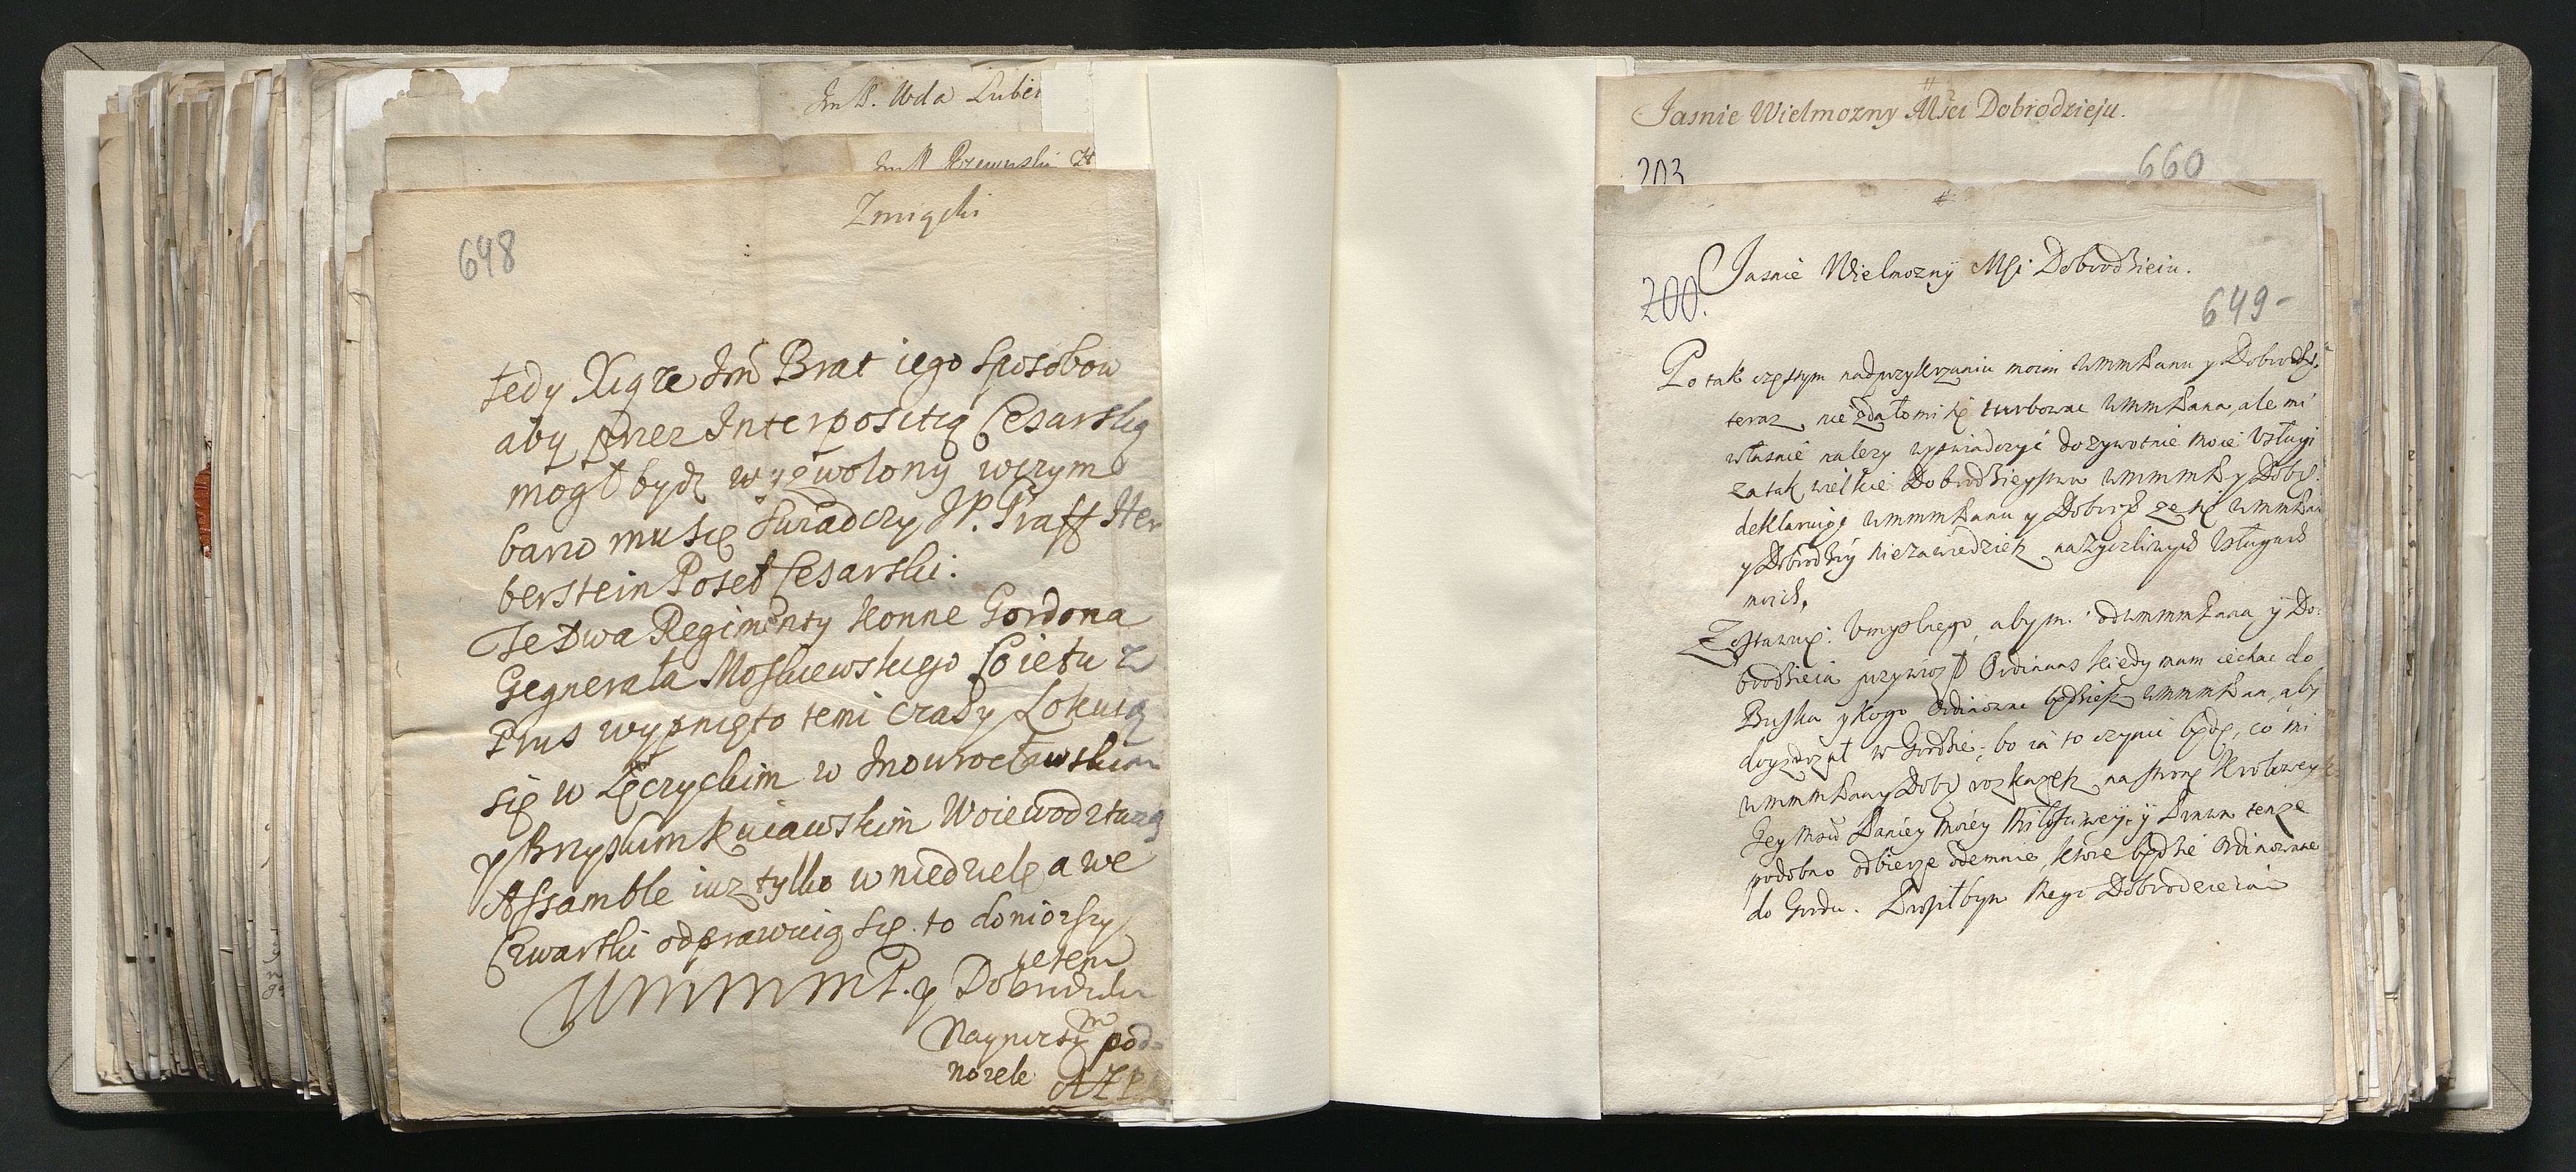 Im P. Wda Lubel
Im P Rzewuski
Zmigelki
648
tedy Xiąze Jm Brat iego sposobow
aby przez Interpositią Cesarską
mogł bydz wyzwolony wczym
barzo mu się swiadczy JP. Graff Her
berstein Poseł Cesarski.
Te Dwa Regimenty konne Gordona
Gegnerała Moskiewskiego co ietu z
Prus wypnięto temi czasy Lokuią
się w Łęczyckim w Inowrocławskim
y Brzyskim Kuiawskim Woiewodztwą
Assamble iuz tylko w niedzielę a we
Czwartki odprawuią się. to doniozszy
iestem
WMMMP. y Dobrodzieia
Nayniższym pod-
nozele AZP
Jasnie Wielmozny Msci Dobrodzieju.
203
660
Jasnie Wielmozny Msi Dobrodzieiu.
200.
649-
Po tak częstym nadprzykrzaniu moim WMMPanu y Dobrodz.
teraz nie zdało mi się turbowac WMMPana, ale mi
własnie nalezy wyswiadczyć dozywotnie moie Usługi
za tak wielkie Dobrodzieystwa WMMMP y Dobr.
deklaruię WMMMPanu y Dobrodz ze się WMMPan
y Dobrodziey niezawiedziesz nazyczliwych Usługach
moich.
Umyslnego, abym od WMMMPana y Do-
brodzieia przywiozł Ordinans kiedy mam iechac do
Buska y kogo Ordinowac będziesz WMMMPan, aby
doyzdrzał w Grodzie; bo ia to czynić będę, co mi
WMMMPan y Dobr roskazesz, na stronę Krolowey
Jey Msci Paniey moiey Miłosciwey, y Prawa tenze
podobno odbierze odemnie, ktore będzie Ordinowane
do Grodu. Prosiłbym mego Dobrodzieia